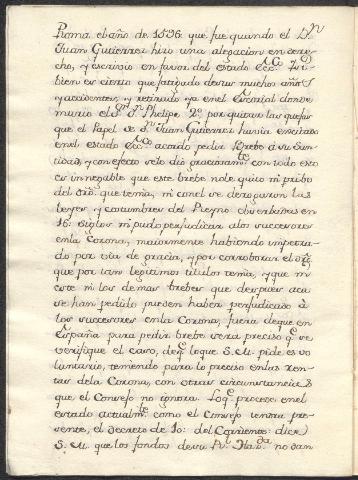 Roma el año de 1596 que fue quando el Dn
Juan Gutierrez hizo una alegacion en dere-
cho, y escrivio en favor del estado Ecco. Tam-
bien es cierto que fatigado de sus muchos años
y accidentes, y retirado ya en el Escorial donde
murio el Sr. Dn Phelipe 2o. por quitar las quejas
que el Papel de Dn Juan Gutierrez havia excitado
en el estado Ecco. acordó pedir Brebe a su San-
tidad, y con efecto se lo dió graciosamte. con todo esto
es innegable que este brebe no le quitó ni pribó
del dro. que tenia, ni con el se derogaron las
leyes, y costumbres del Reyno observadas en
16. siglos ni pudo perjudicar a los successores
en la Corona, maiormente habiendo impetra-
do por via de gracia, y por corroborar el dro.
que por tan legitimos titulos tenia, y que ni
este ni los demas brebes que despues aca
se han pedido pueden haber perjudicado á
los successores en la Corona, fuera de que en
España para pedir brebe sera preciso qe. se
verifique el caso, de qe. lo que S. M. pide es vo-
luntario, teniendo para lo preciso en las ren-
tas de la Corona, con otras circunstancias
que el Consejo no ignora. Lo qe. procede en el
estado actualmte. como el Consejo tendra pre-
sente, el decreto de 10: del Corriente: dice
S. M. que los fondos de su Rl. Hada. no dan